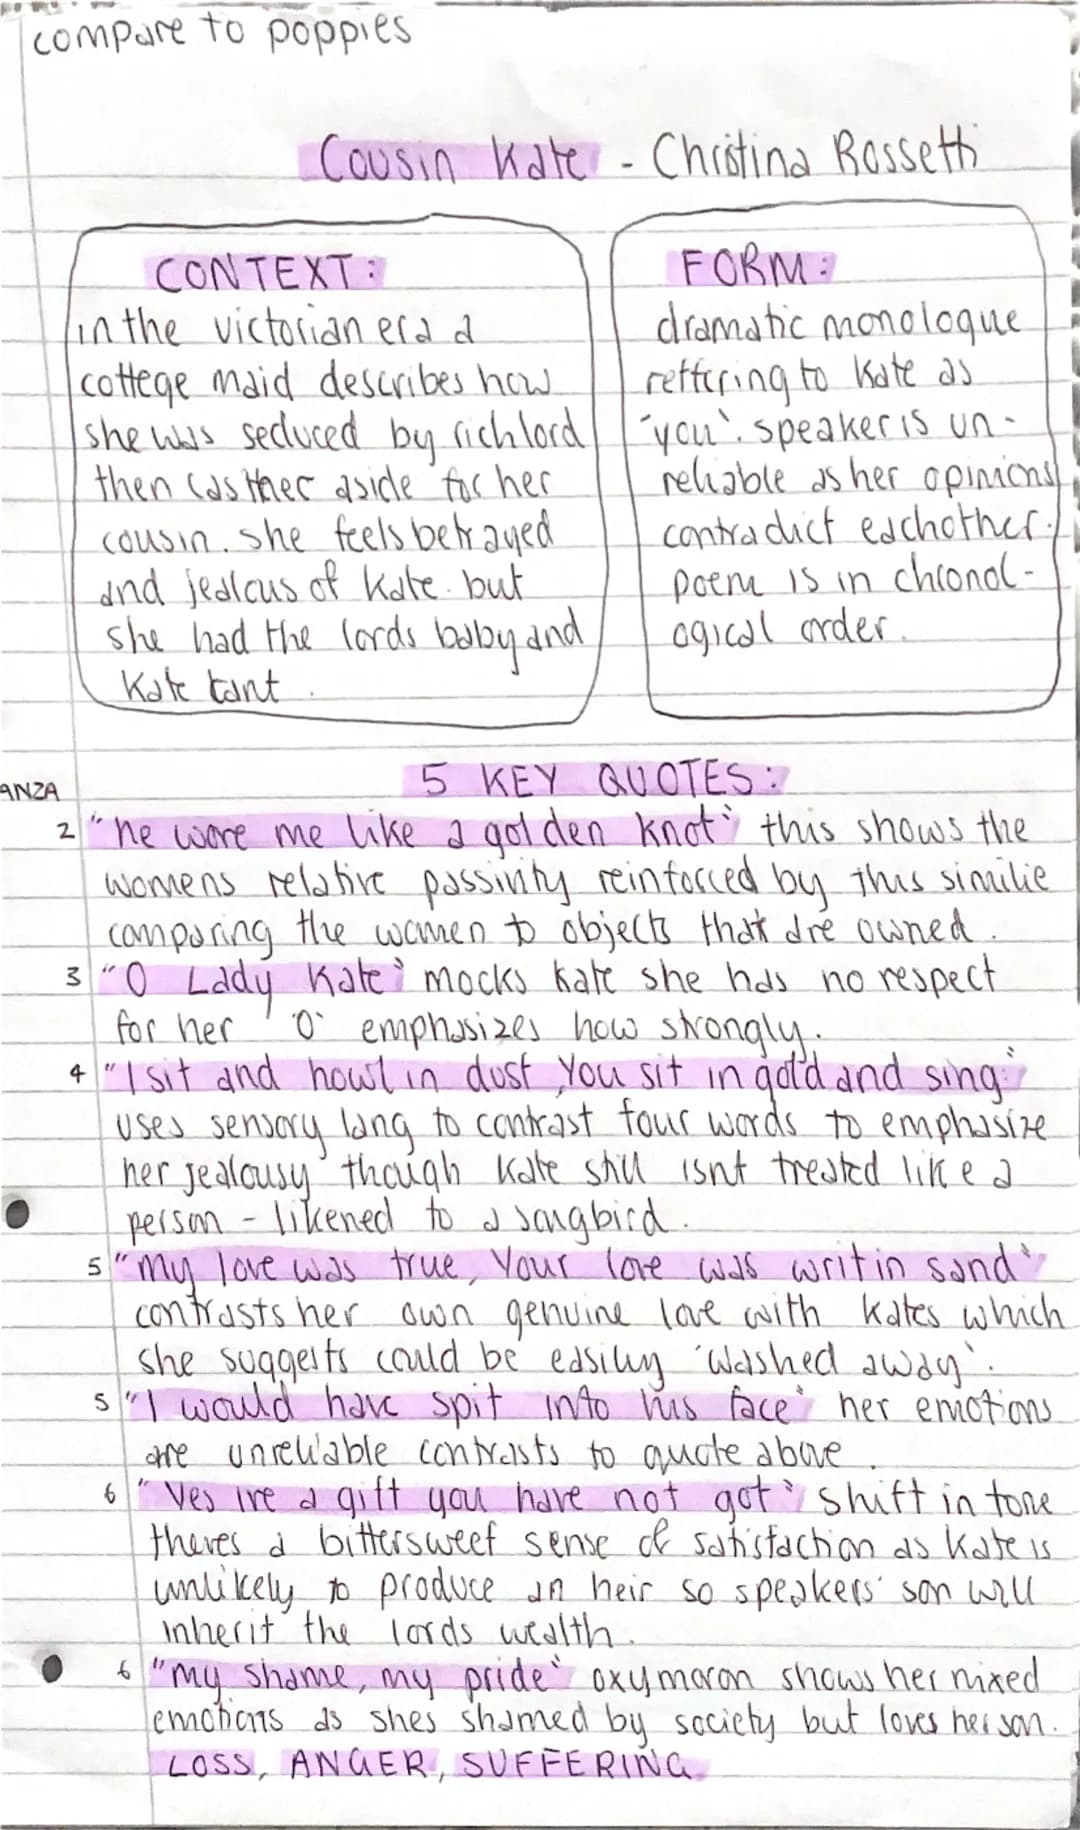 compare to poppies
Cousin Kate - Christina Rossetti
CONTEXT:
in the victorian era a
cottege maid describes how
she was seduced by rich lord
then cast her aside for her
cousin. she feels betrayed
and jealous of Kate. but
she had the lords baby and
Kate cant.
FORM:
dramatic monologue
reffering to Kate as
"you". speaker is un-
reliable as her opinions
contradict eachother.
poem is in chronol-
ogical order.
ANZA
5 KEY QUOTES:
2 "he wore me like a golden knot" this shows the
womens relative passivity reinforced by this similie
comparing the women to objects that are owned.
3 "O Lady Kate" mocks kate she has no respect
for her 'O' emphasizes how strongly.
4 "I sit and howl in dust, You sit in gold and sing:"
uses sensory lang to contrast four words to emphasize
her jealousy though Kate still isnt treated like a
person - likened to a songbird.
5 "my love was true, Your love was writ in sand"
contrasts her own genuine love with kates which
she suggests could be easily 'washed away'.
5 "I would have spit into his face" her emotions
are unreliable contrasts to quote above.
6 "Yes ive a gift you have not got" shift in tone
theres a bittersweet sense of satisfaction as Kate is
unlikely to produce an heir so speakers' son will
inherit the lords wealth.
6 "my shame, my pride" oxymoron shows her mixed
emotions as shes shamed by society but loves her son.
LOSS, ANGER, SUFFERING